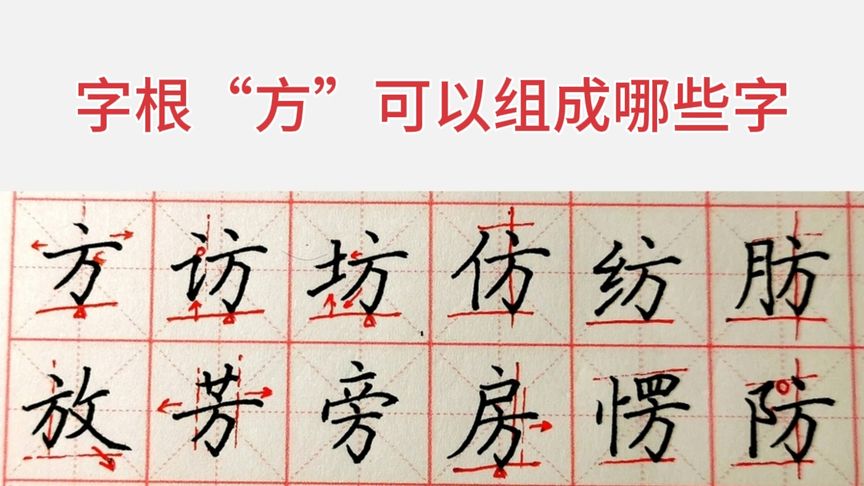 字根“方”可以组成哪些字
方访坊仿纺肪
放芳旁房愣防